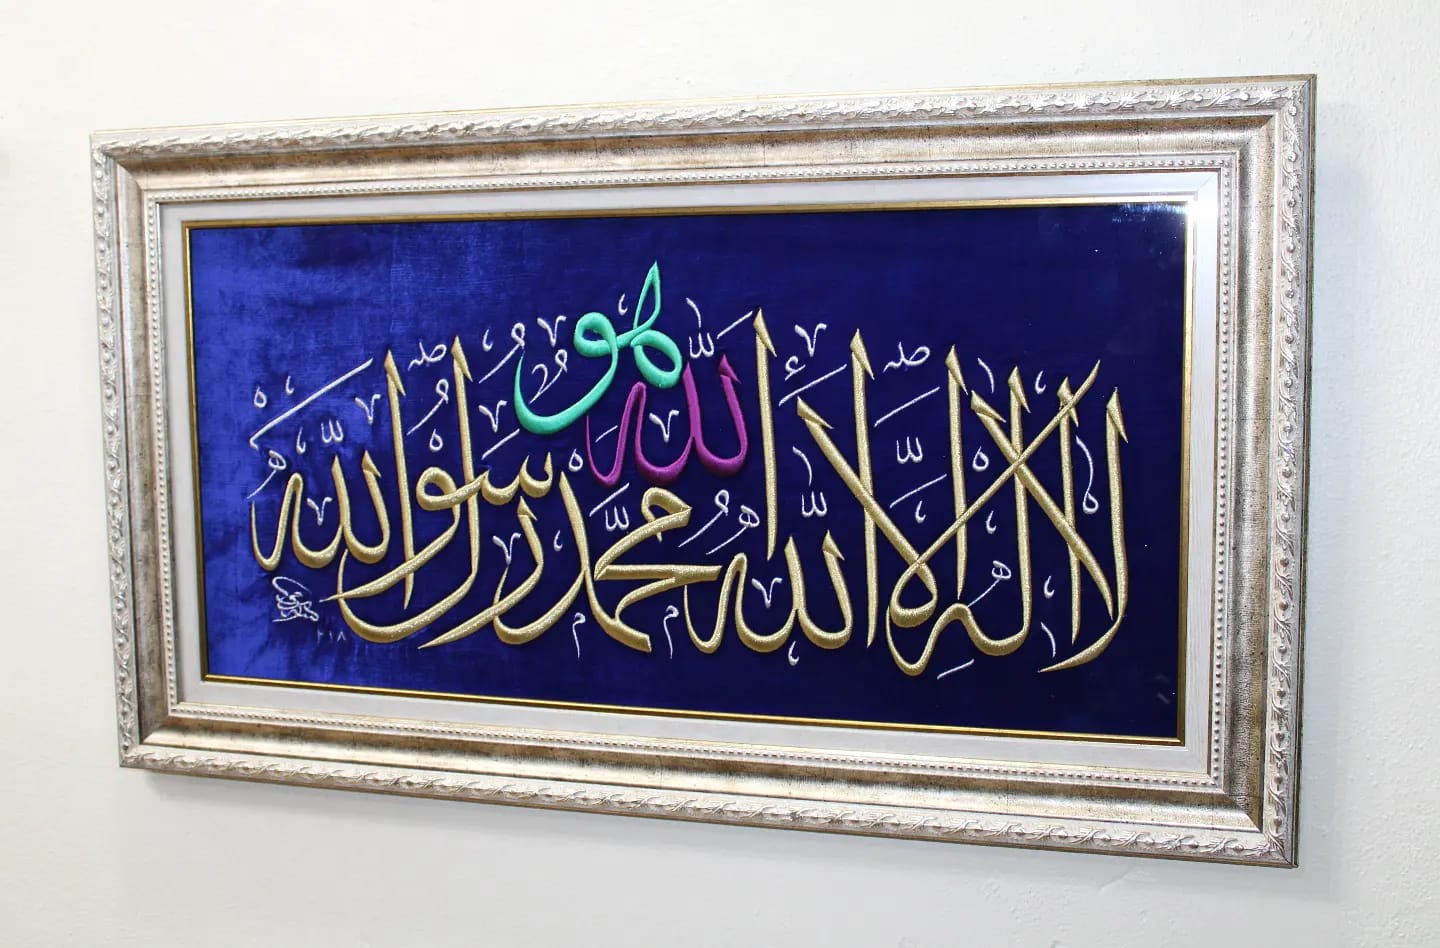 هو
لله
لا إله إلا الله محمد رسول الله
٢١٨